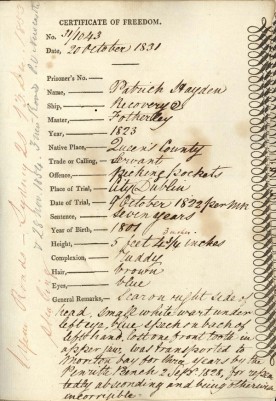 CERTIFICATE OF FREEDOM.
No. 31/1043
Date, 20 October 1831
Prisoner's No.
Name, Patrick Hayden
Ship, Recovery
Master, Fotherley
Year, 1823
Native Place, Queens County
Trade or Calling, Servant
Offence, picking pockets
Place of Trial, City Dublin
Date of Trial, 9 October 1822
Sentence, Seven years
Year of Birth, 1801
Height, 5 feet inches
Complexion, Ruddy
Hair, brown
Eyes, blue
General Remarks, Scar on right side of
head, Small white wart under
left eye, blue speck on back of
left hand, lost one front tooth in
upper jaw, was transported to
Moreton bay for two years by the
Penrith Bench 2 Sept 1828, for
absconding and being otherwise
incorrigible.